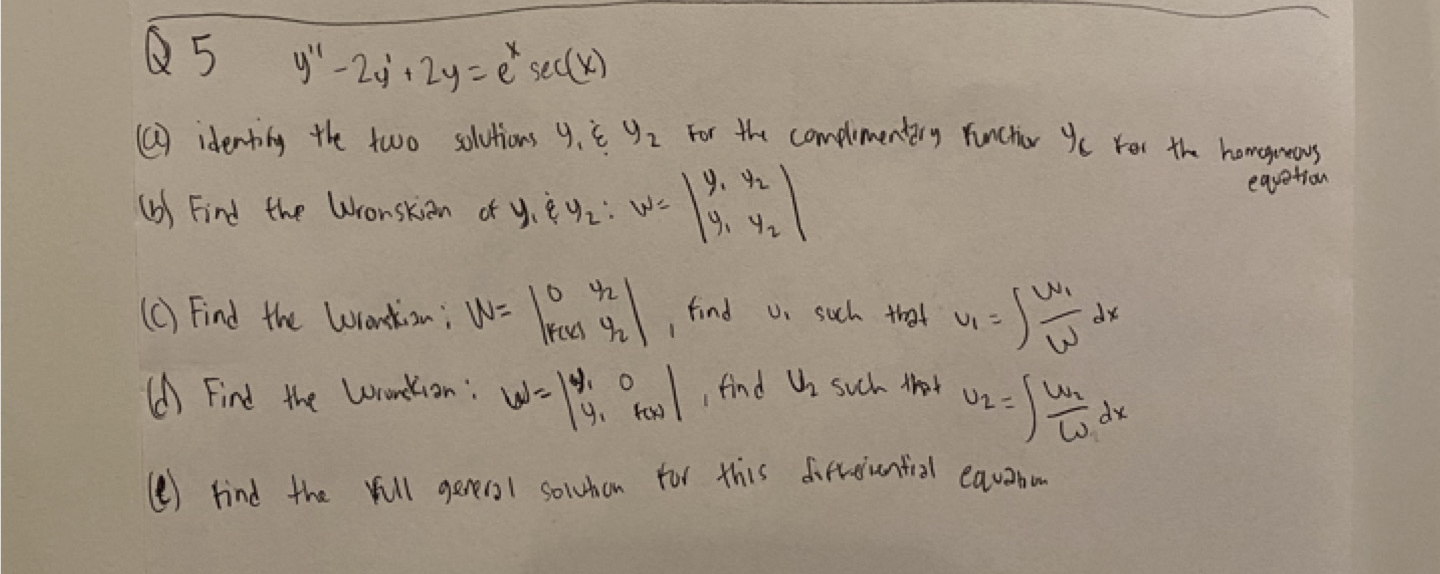 Q 5 y'' - 2y' + 2y = e^x sec(x)
(a) identify the two solutions y₁ & y₂ for the complimentary function y_c for the homogeneous equation
(b) Find the Wronskian of y₁ & y₂: W= |y₁ y₂; y₁ y₂|
(c) Find the Wronskian; W= |0 y₂; F(x) y₂|, find u₁ such that u₁ = ∫ W₁/W dx
(d) Find the Wronskian: W= |y₁ 0; y₁ F(x)|, find U₂ such that u₂ = ∫ W₂/W dx
(e) find the full general solution for this differential equation